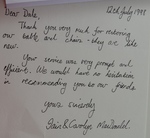 12th July 1998
Dear Dale,
Thank you very much for restoring
our table and chairs - they are like
new.
Your service was very prompt and
efficient. We would have no hesitation
in recommending you to our friends.
Yours Sincerely
Iain & Carolyn MacDonald.